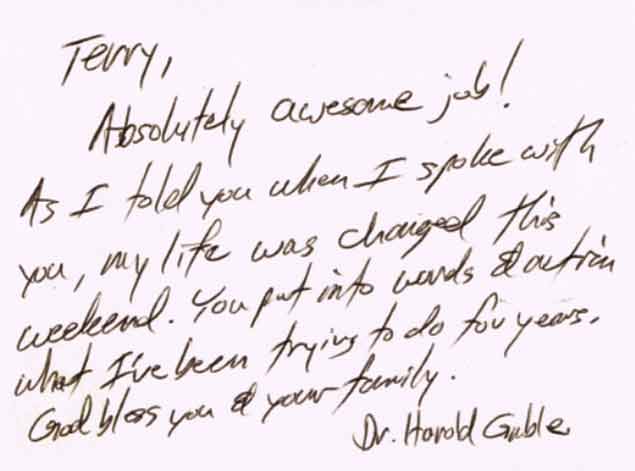 Terry,
Absolutely awesome job!
As I told you when I spoke with
you, my life was changed this
weekend. You put into words & action
what I've been trying to do for years.
God bless you & your family.
Dr. Harold